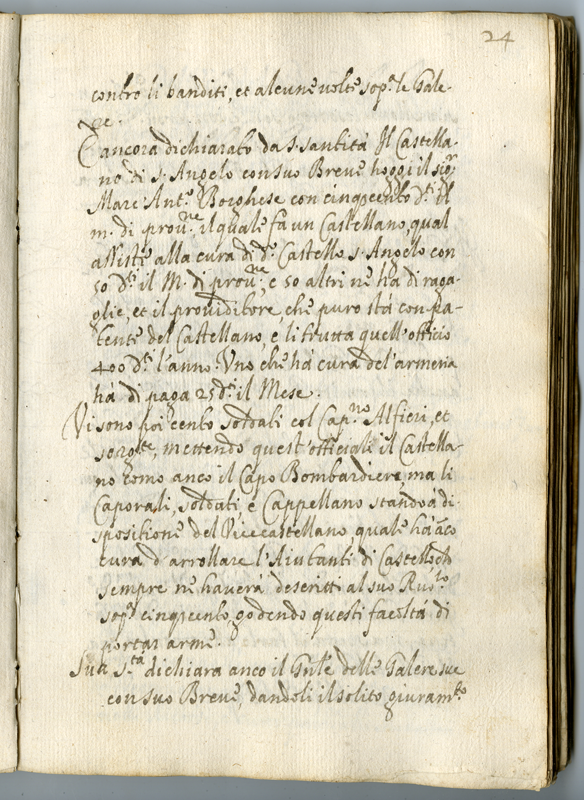 24
contro li banditi, et alcune volte sop.ª le Gale-
re.
È ancora dichiarato da S. Santità Il Castella-
no di S. Angelo con suo Breve hoggi il sig.r
Marc Ant.º Borghese con cinqcento d.ti il
m. di prou.ne il quale fa un Castellano, qual
assiste alla cura di d.º Castello S. Angelo con
50 d.ti il M. di prou.ne, e 50 altri ne ha di rega-
glie, et il providitore, che puro stà con pa-
tente del Castellano, e li frutta quell'officio
400 d.ti l'anno. Uno che hà cura del'armeria
hà di paga 25 d.ti il Mese.
Vi sono poi cento soldati col Cap.no Alfieri, et
serg.te, mettendo quest'officiali il Castella-
no como anco il Capo Bombardiere, ma li
Caporali, soldati, e Cappellano stando à di-
spositione del Vicecastellano, quale hà ãco
cura d'arrollare l'Aiutanti di Castello, ch
sempre ne haverà descritti al suo Ruolo
sop.ª cinqcento, godendo questi facoltà di
portar arme.
Sua S.tà dichiara anco il Gñle delle Galere sue
con suo Breve, dandoli il solito giuram.to